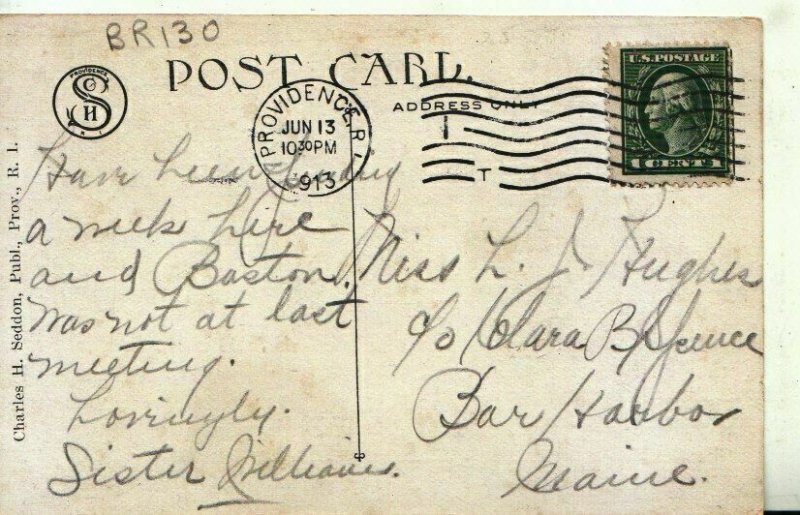 BR130
POST CARD.
ADDRESS ONLY
PROVIDENCE, R.I.
JUN 13
10 30 PM
1913
T
U.S. POSTAGE
1 CENT 1
PROVIDENCE
S O H
R. I.
Charles H. Seddon, Publ., Prov., R. I.
Have been
a week here
and Boston.
was not at last
meeting.
Lovingly.
Sister Williams.
Miss L. J. Hughes
c/o Clara B Spence
Bar Harbor
Maine.